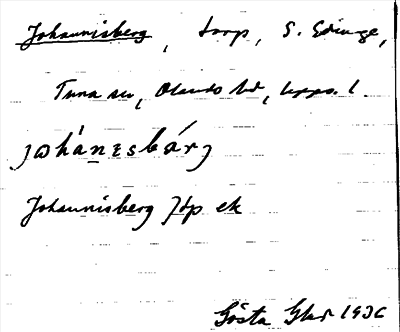 Johannisberg, torp, S. Edinge,
Tuna sn, Olands hd, Upps. l.
jωhánεsbárj
Johannisberg jdp ek
Gösta 1936